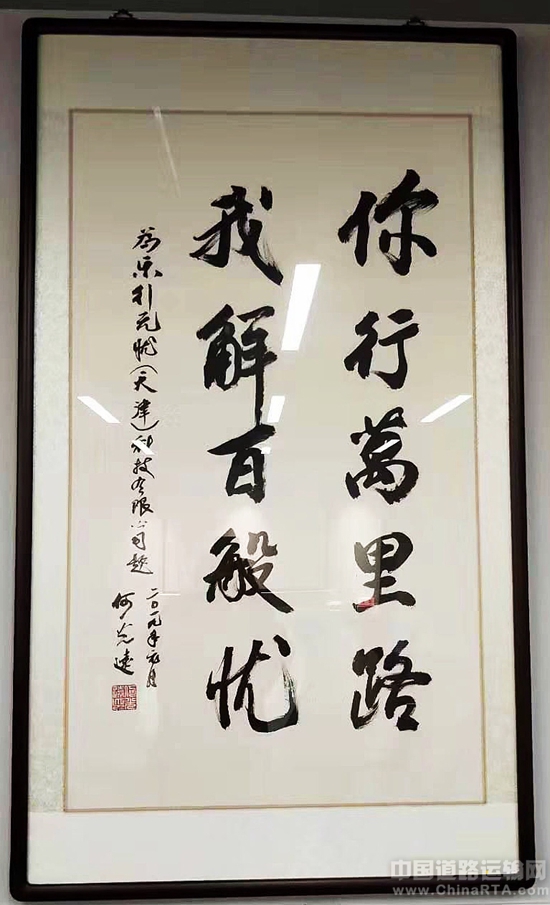 你行萬里路
我解百般忧
为乐行无忧（天津）科技有限公司题
二〇一九年元月
何光远
中国道路运输网
www.ChinaRTA.com